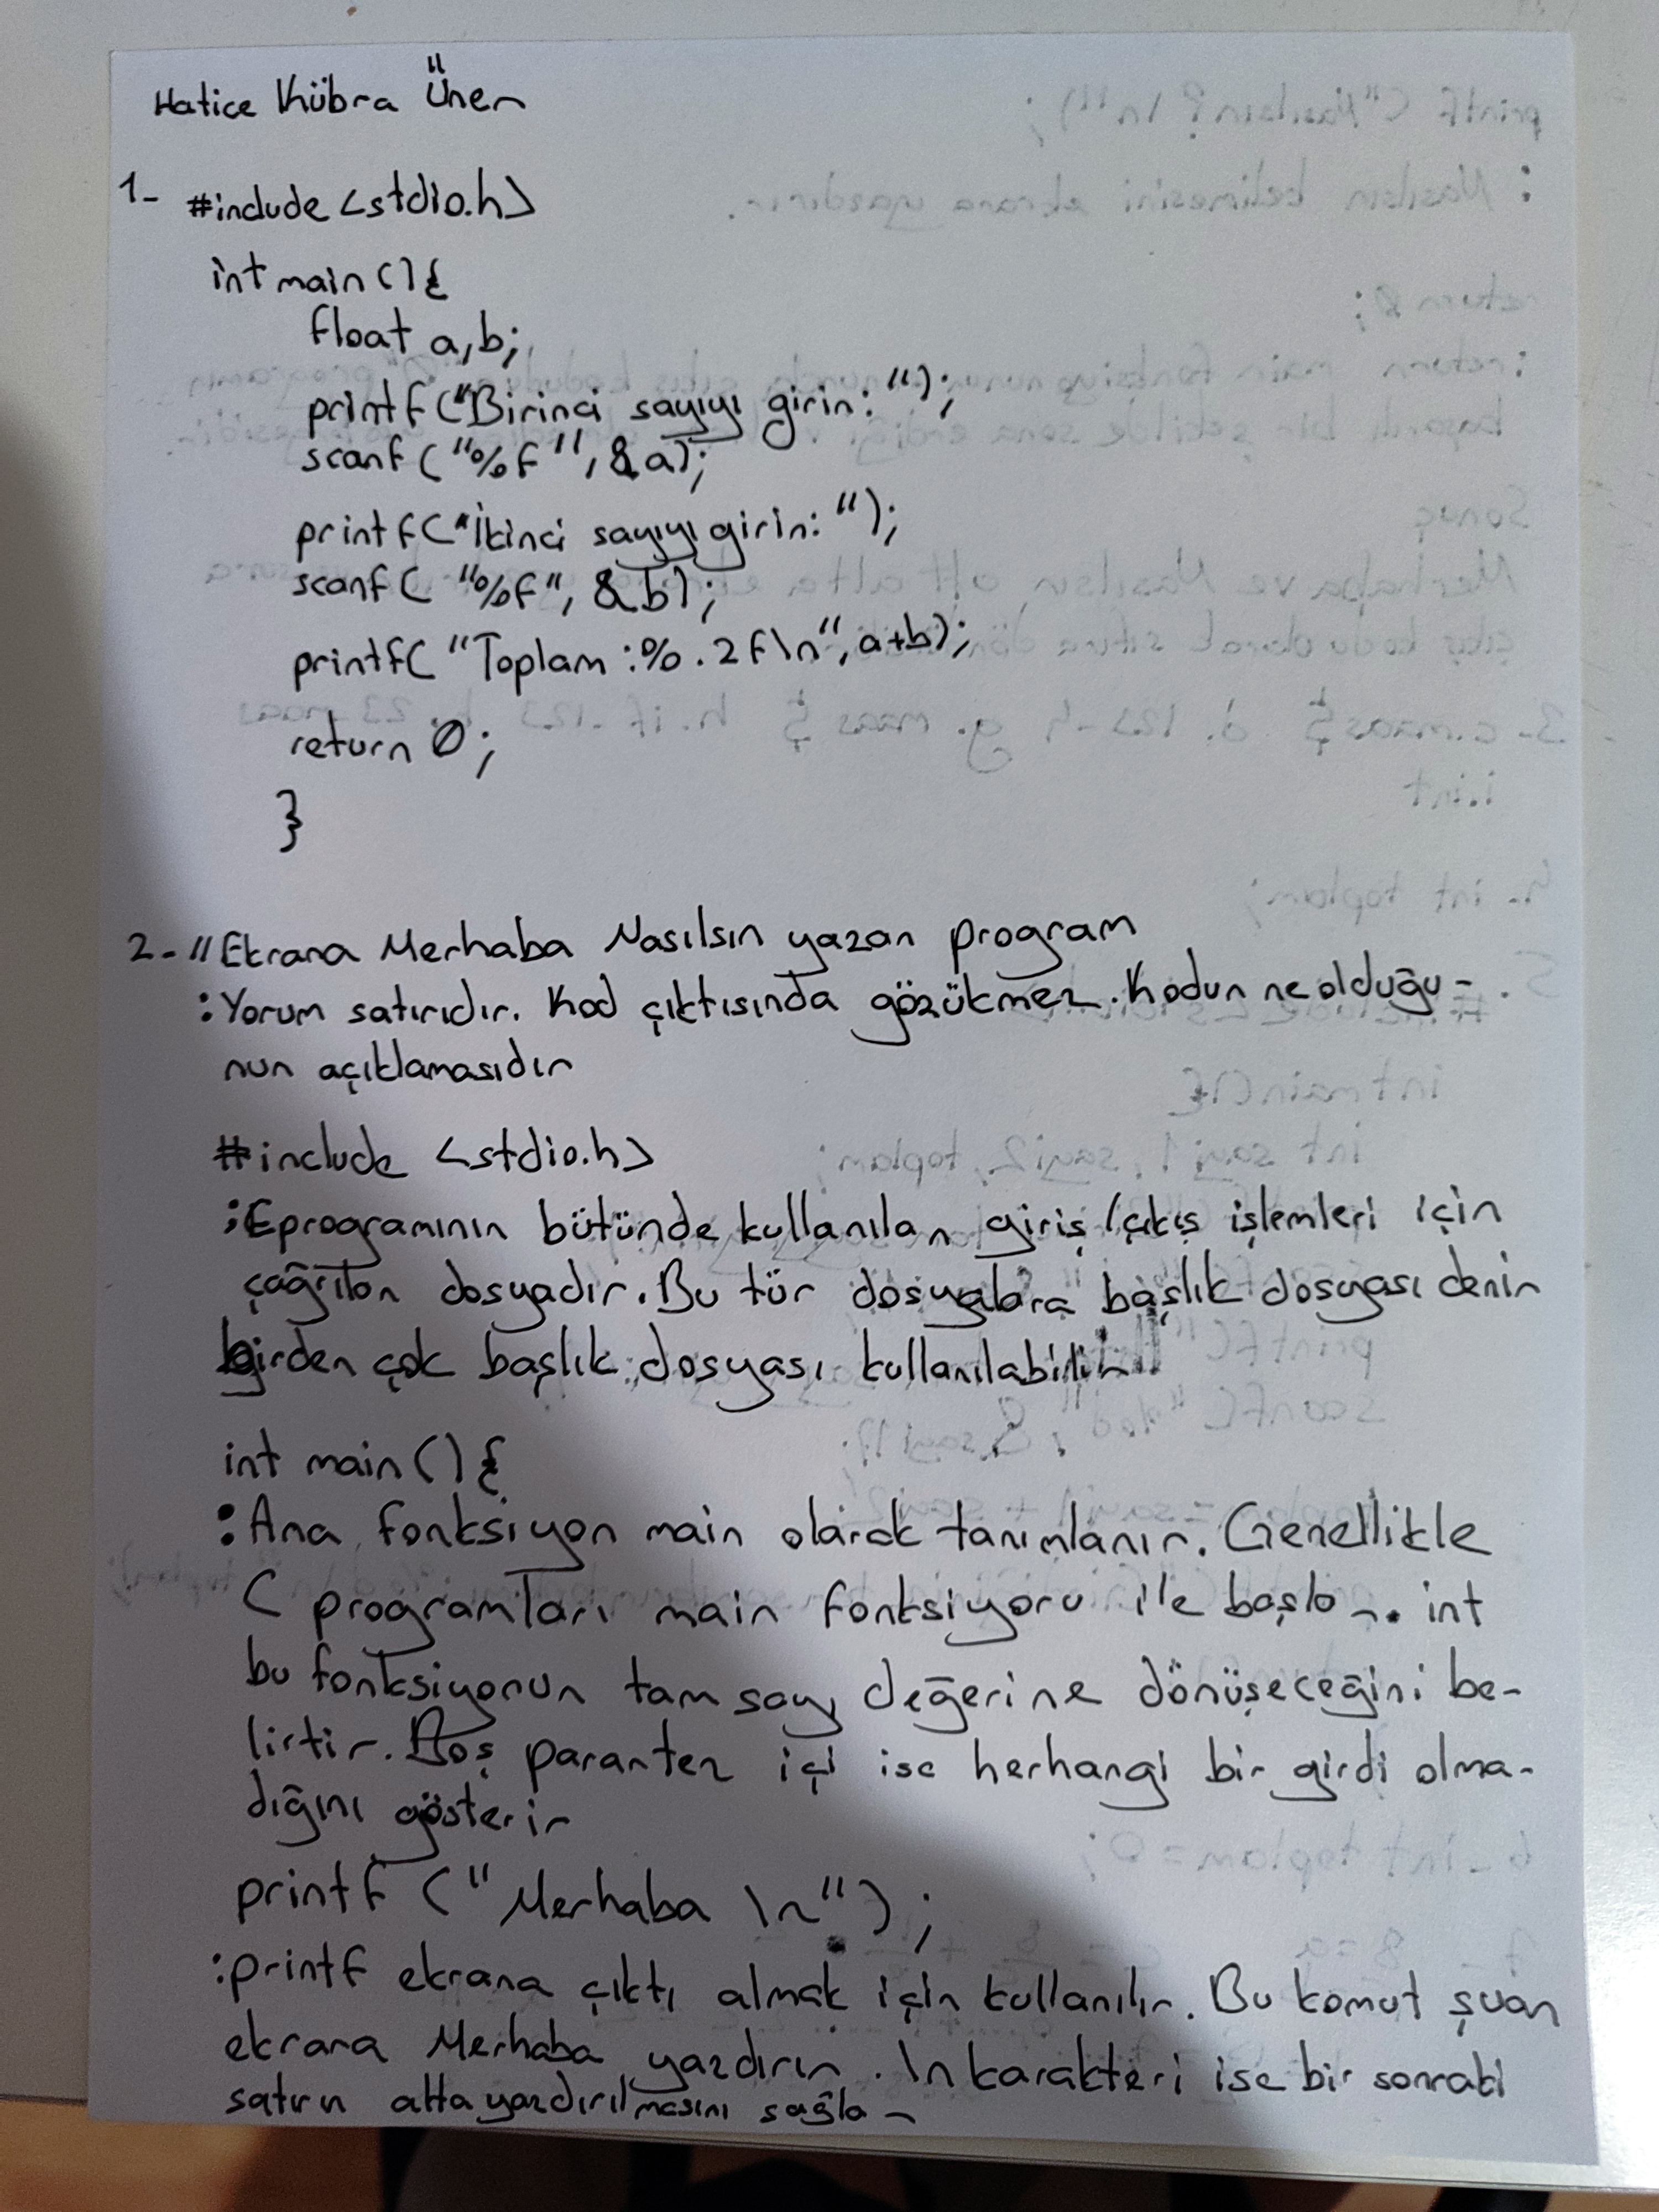 Hatice Kübra Üner
1- #include <stdio.h>
int main () {
float a, b;
printf ("Birinci sayıyı girin: ");
scanf ("%f", &a);
printf ("İkinci sayıyı girin: ");
scanf ( "%f", &b);
printf( "Toplam :%.2f\n", a+b);
return 0;
}
2- // Ekrana Merhaba Nasılsın yazan program
: Yorum satırıdır. Kod çıktısında gözükmez. Kodun ne olduğu-
nun açıklamasıdır
#include <stdio.h>
: programının bütünde kullanılan giriş/çıkış işlemleri için
çağrılan dosyadır. Bu tür dosyalara başlık dosyası denir
birden çok başlık dosyası kullanılabilir.
int main () {
: Ana fonksiyon main olarak tanımlanır. Genellikle
C programları main fonksiyonu ile başlar. int
bu fonksiyonun tam sayı değerine dönüşeceğini be-
lirtir. Boş parantez içi ise herhangi bir girdi olma-
dığını gösterir
printf ("Merhaba \n");
: printf ekrana çıktı almak için kullanılır. Bu komut şuan
ekrana Merhaba yazdırır. \n karakteri ise bir sonraki
satırın alta yazdırılmasını sağlar